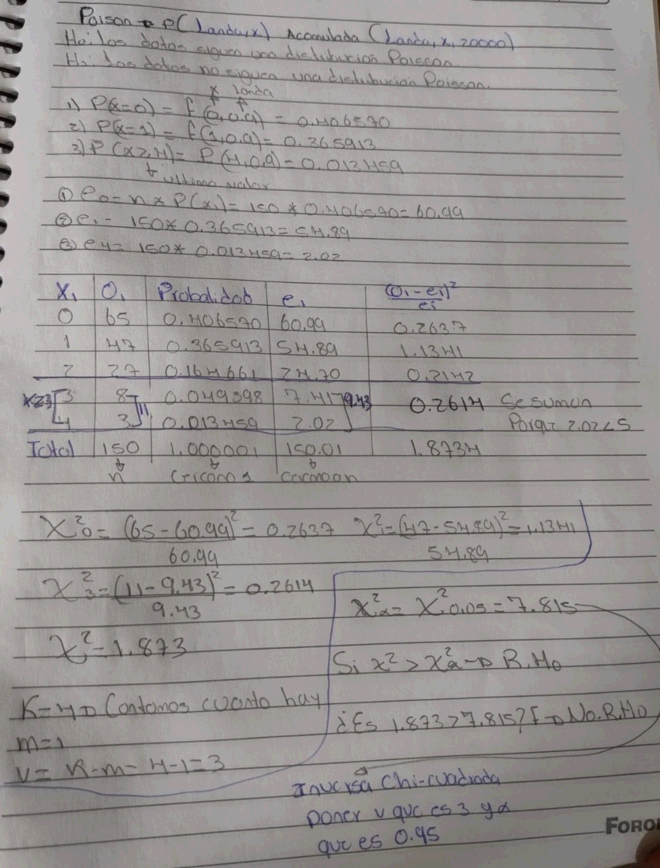 Poison → P(Landa, x) Acomulada (Landa, x, 20000)
Ho: Los datos siguen una distribucion Poisson
H1: Los datos no siguen una distribucion Poisson.
x landa
1) P(x=0) = f(0,0.9) = 0.406570
2) P(x=1) = f(1,0.9) = 0.365913
3) P(x≥4) = P(4,0.9) = 0.013459
↳ ultimo valor
① e0 = n * P(x) = 150 * 0.406570 = 60.99
② e1 = 150 * 0.365913 = 54.89
③ e4 = 150 * 0.013459 = 2.02
X1 O1 Probalidad e1 (O1 - e1)²/ei
0 65 0.406570 60.99 0.2637
1 47 0.365913 54.89 1.1341
2 27 0.164661 24.70 0.2142
x≥3 [ 3 8 ] 11 0.049398 7.417 ] 9.43 0.2614 Se suman
4 3 0.013459 2.02 Porq: 2.02<5
Total 150 1.000001 150.01 1.8734
n
X²0 = (65-60.99)²/60.99 = 0.2637 X²1 = (47-54.89)²/54.89 = 1.1341
X²3 = (11-9.43)²/9.43 = 0.2614
X²α = X²0.05 = 7.815
X² = 1.873
Si x² > X²α → R.Ho
K = 4 → Contamos cuanto hay
¿Es 1.873 > 7.815? F → No.R.Ho
m = 1
V = K-m = 4-1 = 3
Inversa Chi-cuadrada
poner v que es 3 y α
que es 0.95